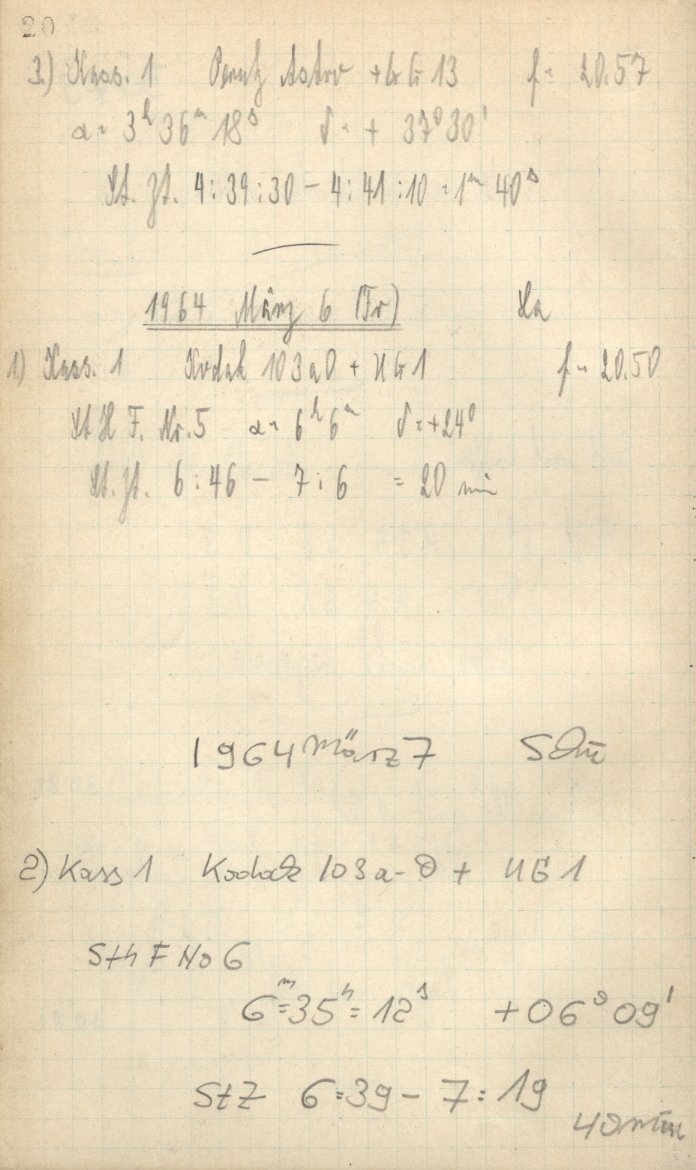 20
3.) Kass. 1 Perutz Astro + GG 13 f = 20.57
α = 3h 36m 18s δ = + 37° 30'
St. Zt. 4:39:30 – 4:41:10 = 1m 40s
1964 März 6 (Fr)
1) Kass. 1 Kodak 103aD + UG1 f = 20.50
St H F. Nr. 5 α = 6h 6m δ = +24°
St. Zt. 6:46 – 7:6 = 20 min
1964 März 7 Schü
2) Kass 1 Kodak 103a-D + UG1
StH F No 6
6m=35h=12s +06° 09'
StZ 6=39 – 7:19
40 min